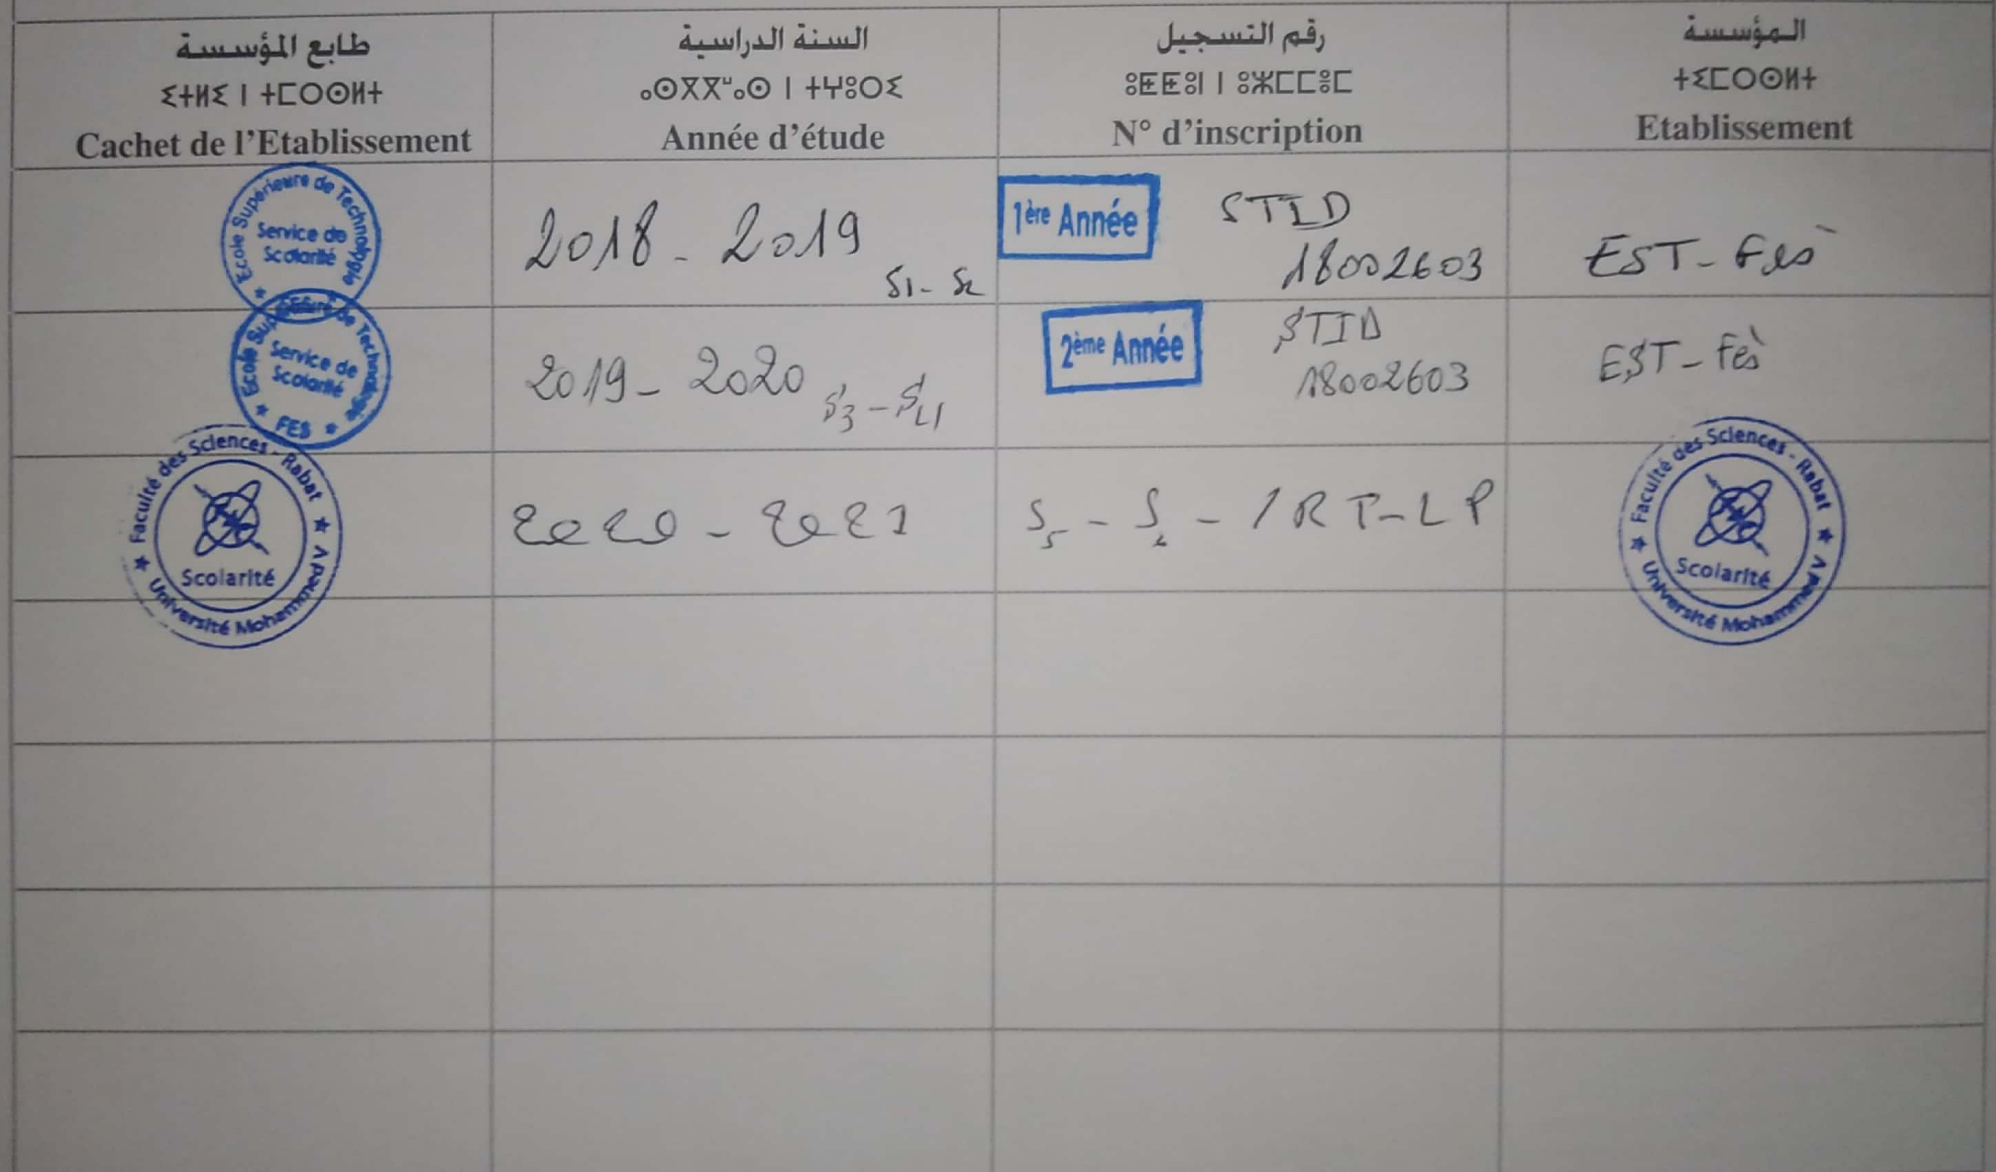 طابع المؤسسة
ⵉⵜⵍⵉ ⵏ ⵜⵎⵔⵙⵍⵜ
Cachet de l'Etablissement
السنة الدراسية
ⴰⵙⴳⴳⵯⴰⵙ ⵏ ⵜⵖⵓⵔⵉ
Année d'étude
رقم التسجيل
ⵓⵟⵟⵓⵏ ⵏ ⵓⵣⵎⵎⵓⵎ
N° d'inscription
المؤسسة
ⵜⵉⵎⵔⵙⵍⵜ
Etablissement
Ecole Supérieure de Technologie
Service de
Scolarité
2018 - 2019
S1 - S2
1ère Année
STID
18002603
EST - Fès
Ecole Supérieure de Technologie
Service de
Scolarité
FES
2019 - 2020 S3 - S4
2ème Année
STID
18002603
EST - Fès
Faculté des Sciences - Rabat
Scolarité
Université Mohammed V
2020 - 2021
S5 - S6 - IRT-LP
Faculté des Sciences - Rabat
Scolarité
Université Mohammed V